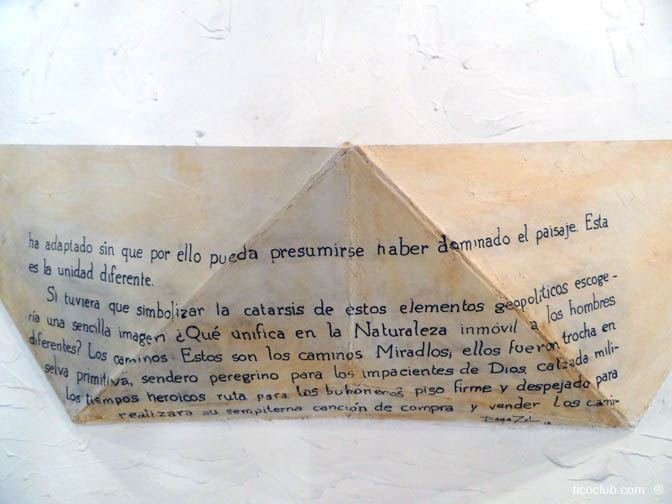 ha adaptado sin que por ello pueda presumirse haber dominado el paisaje. Esta
es la unidad diferente.
Si tuviera que simbolizar la catarsis de estos elementos geopolíticos escoge-
ría una sencilla imagen ¿Qué unifica en la Naturaleza inmóvil a los hombres
diferentes? Los caminos. Estos son los caminos Miradlos; ellos fueron trocha en
selva primitiva, sendero peregrino para los impacientes de Dios, calzada mili-
los tiempos heroicos ruta para los buhoneros piso firme y despejado para
realizara su sempiterna canción de compra y vender Los cami-
ticoclub.com ®